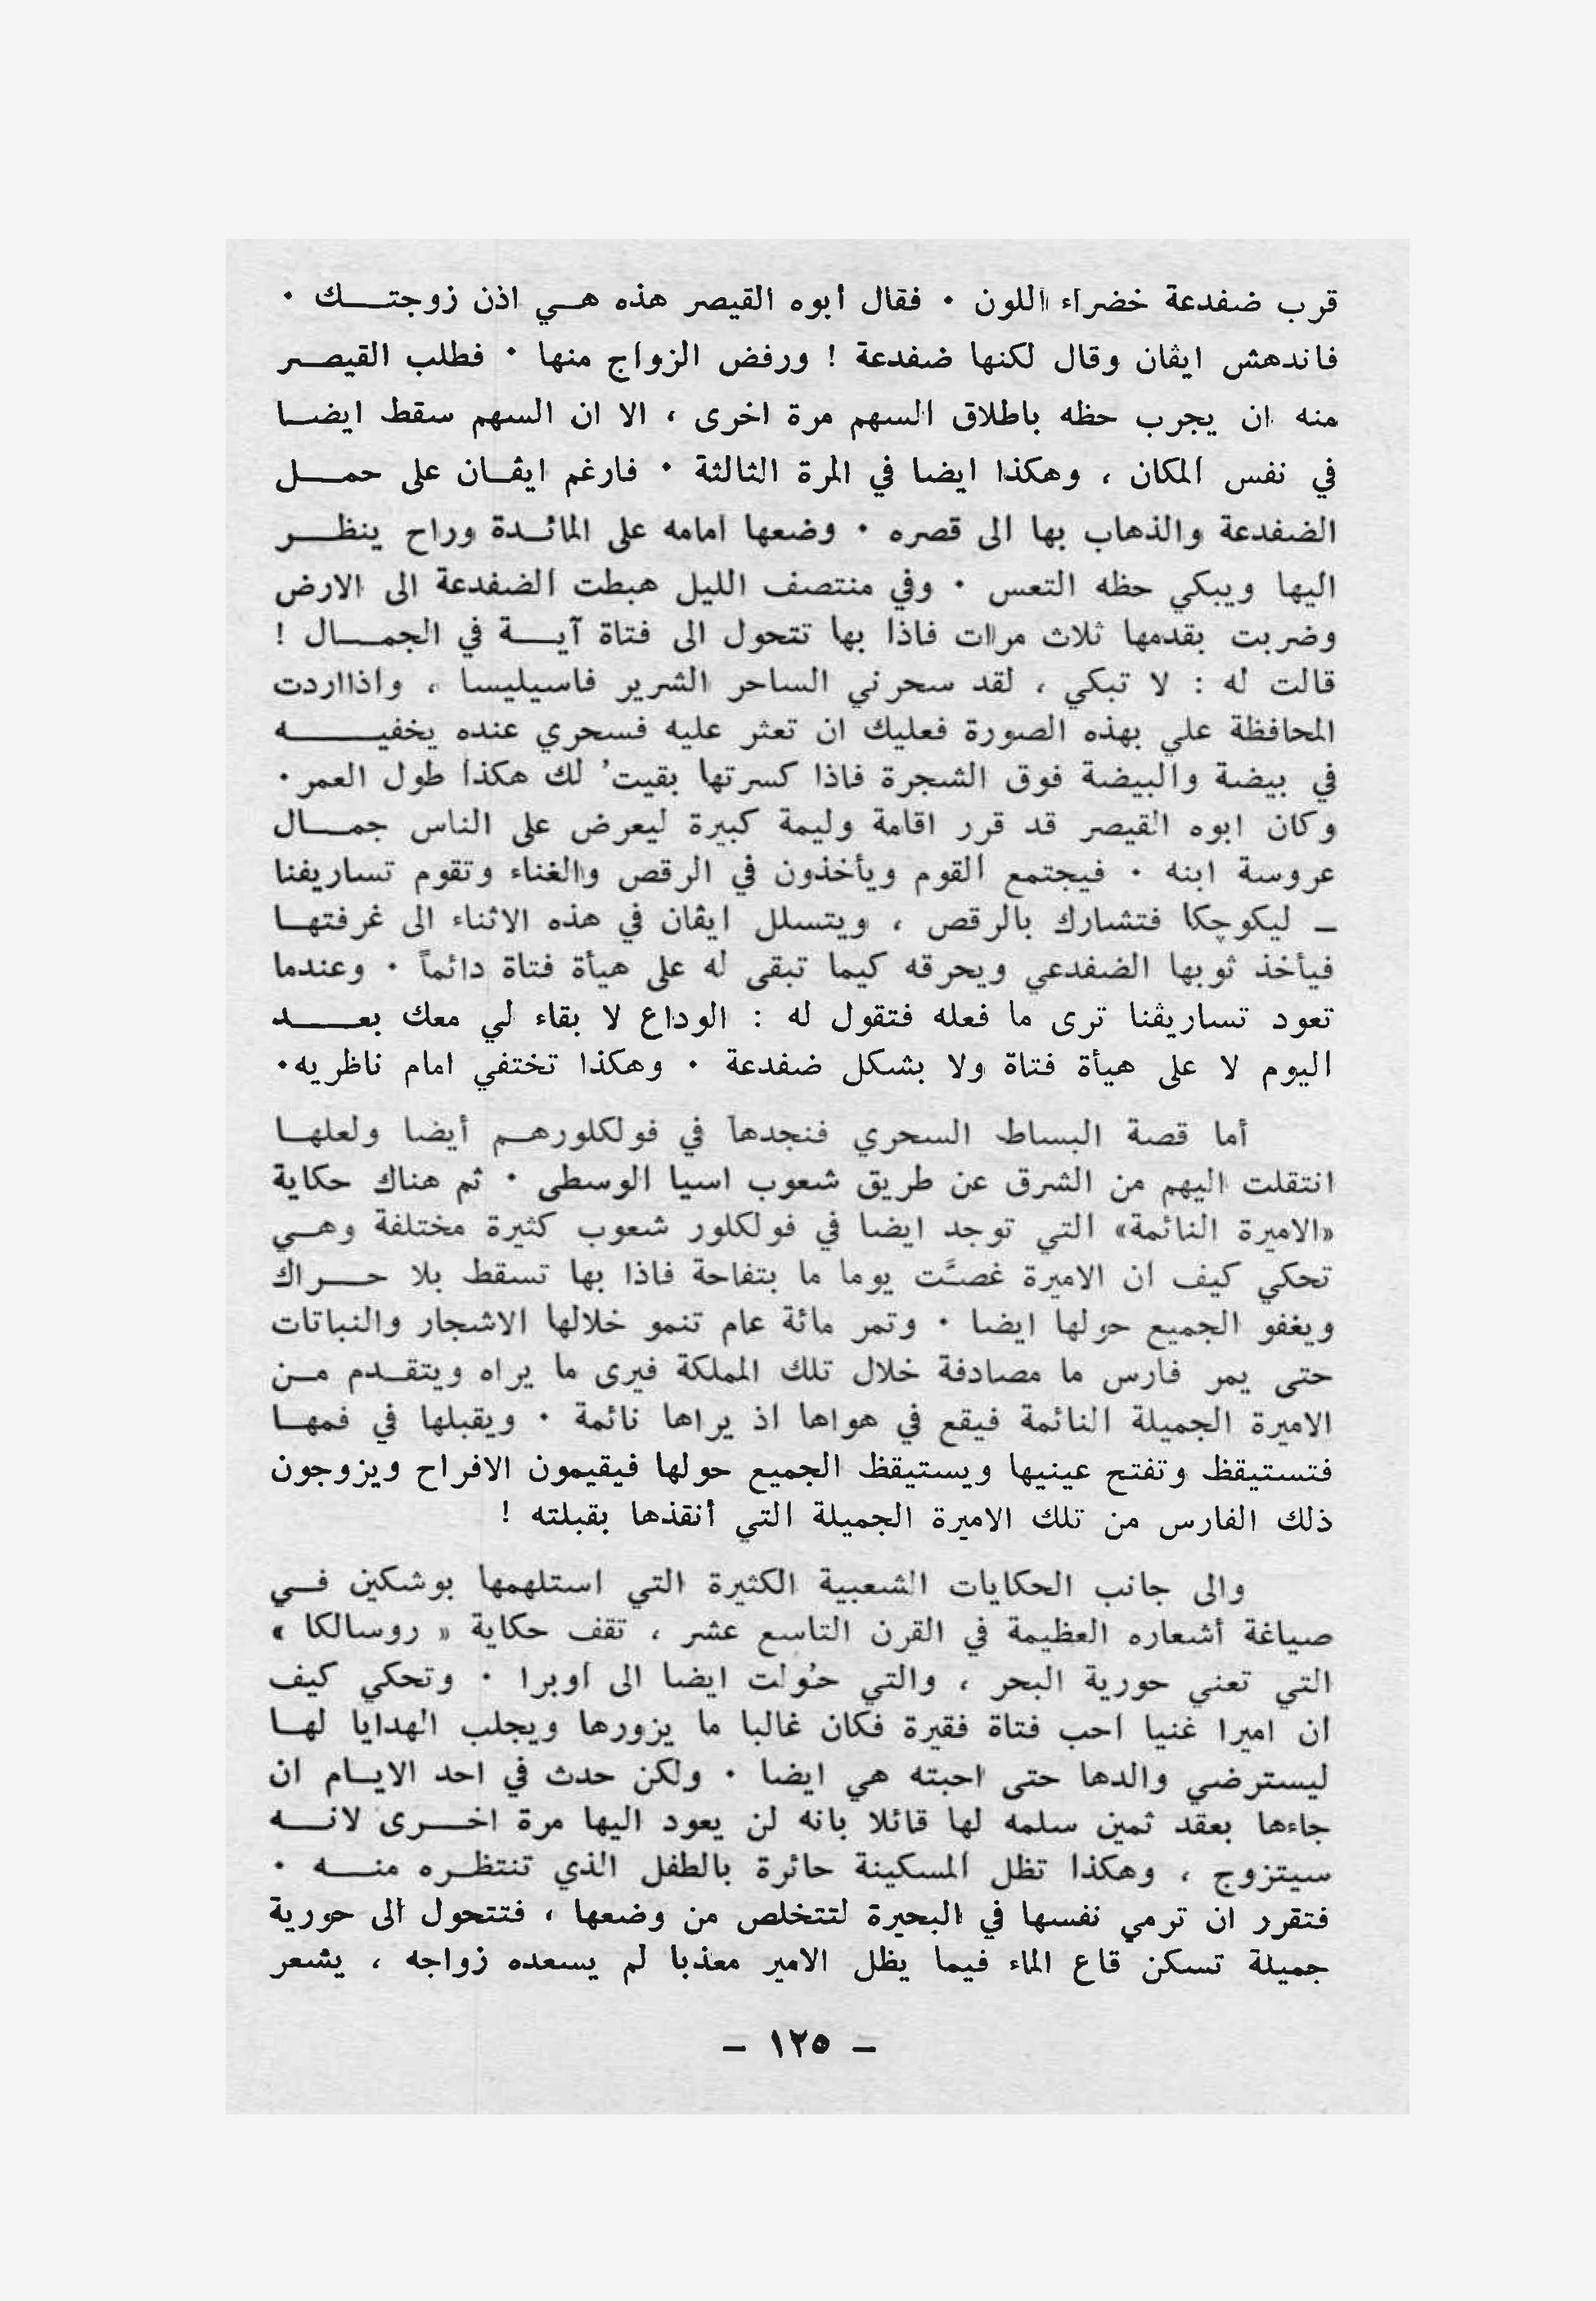 قرب ضفدعة خضراء اللون ٠ فقال أبوه القيصر هذه هـي اذن زوجتـك ٠
فاندهش ايڤان وقال لكنها ضفدعة ! ورفض الزواج منها ٠ فطلب القيصر
منه ان يجرب حظه باطلاق السهم مرة اخرى ، الا ان السهم سقط ايضا
في نفس المكان ، وهكذا ايضا في المرة الثالثة ٠ فارغم ايڤـان على حمـل
الضفدعة والذهاب بها الى قصره ٠ وضعها امامه على المائـدة وراح ينظـر
اليها ويبكي حظه التعس ٠ وفي منتصف الليل هبطت الضفدعة الى الارض
وضربت بقدمها ثلاث مرات فاذا بها تتحول الى فتاة آيـة في الجمـال !
قالت له : لا تبكي ، لقد سحرني الساحر الشرير فاسيليسا ، واذااردت
المحافظة علي بهذه الصورة فعليك ان تعثر عليه فسحري عنده يخفيـه
في بيضة والبيضة فوق الشجرة فاذا كسرتها بقيتُ لك هكذا طول العمر٠
وكان ابوه القيصر قد قرر اقامة وليمة كبيرة ليعرض على الناس جمـال
عروسة ابنه ٠ فيجتمع القوم ويأخذون في الرقص والغناء وتقوم تساريفنا
ـ ليكوچكا فتشارك بالرقص ، ويتسلل ايڤان في هذه الاثناء الى غرفتهـا
فيأخذ ثوبها الضفدعي ويحرقه كيما تبقى له على هيأة فتاة دائماً ٠ وعندما
تعود تساريڤنا ترى ما فعله فتقول له : الوداع لا بقاء لي معك بعـد
اليوم لا على هيأة فتاة ولا بشكل ضفدعة ٠ وهكذا تختفي امام ناظريه٠
أما قصة البساط السحري فنجدها في فولكلورهـم أيضا ولعلهـا
انتقلت اليهم من الشرق عن طريق شعوب اسيا الوسطى ٠ ثم هناك حكاية
«الاميرة النائمة» التي توجد ايضا في فولكلور شعوب كثيرة مختلفة وهـي
تحكي كيف ان الاميرة غصَّت يوما ما بتفاحة فاذا بها تسقط بلا حـراك
ويغفو الجميع حولها ايضا ٠ وتمر مائة عام تنمو خلالها الاشجار والنباتات
حتى يمر فارس ما مصادفة خلال تلك المملكة فيرى ما يراه ويتقـدم مـن
الاميرة الجميلة النائمة فيقع في هواها اذ يراها نائمة ٠ ويقبلها في فمهـا
فتستيقظ وتفتح عينيها ويستيقظ الجميع حولها فيقيمون الافراح ويزوجون
ذلك الفارس من تلك الاميرة الجميلة التي أنقذها بقبلته !
والى جانب الحكايات الشعبية الكثيرة التي استلهمها بوشكين فـي
صياغة أشعاره العظيمة في القرن التاسع عشر ، تقف حكاية « روسالكا »
التي تعني حورية البحر ، والتي حُولت ايضا الى اوبرا ٠ وتحكي كيف
ان اميرا غنيا احب فتاة فقيرة فكان غالبا ما يزورها ويجلب الهدايا لهـا
ليسترضي والدها حتى احبته هي ايضا ٠ ولكن حدث في احد الايـام ان
جاءها بعقد ثمين سلمه لها قائلا بانه لن يعود اليها مرة اخـرى لانـه
سيتزوج ، وهكذا تظل المسكينة حائرة بالطفل الذي تنتظـره منـه ٠
فتقرر ان ترمي نفسها في البحيرة لتتخلص من وضعها ، فتتحول الى حورية
جميلة تسكن قاع الماء فيما يظل الامير معذبا لم يسعده زواجه ، يشعر
ـ ١٢٥ ـ